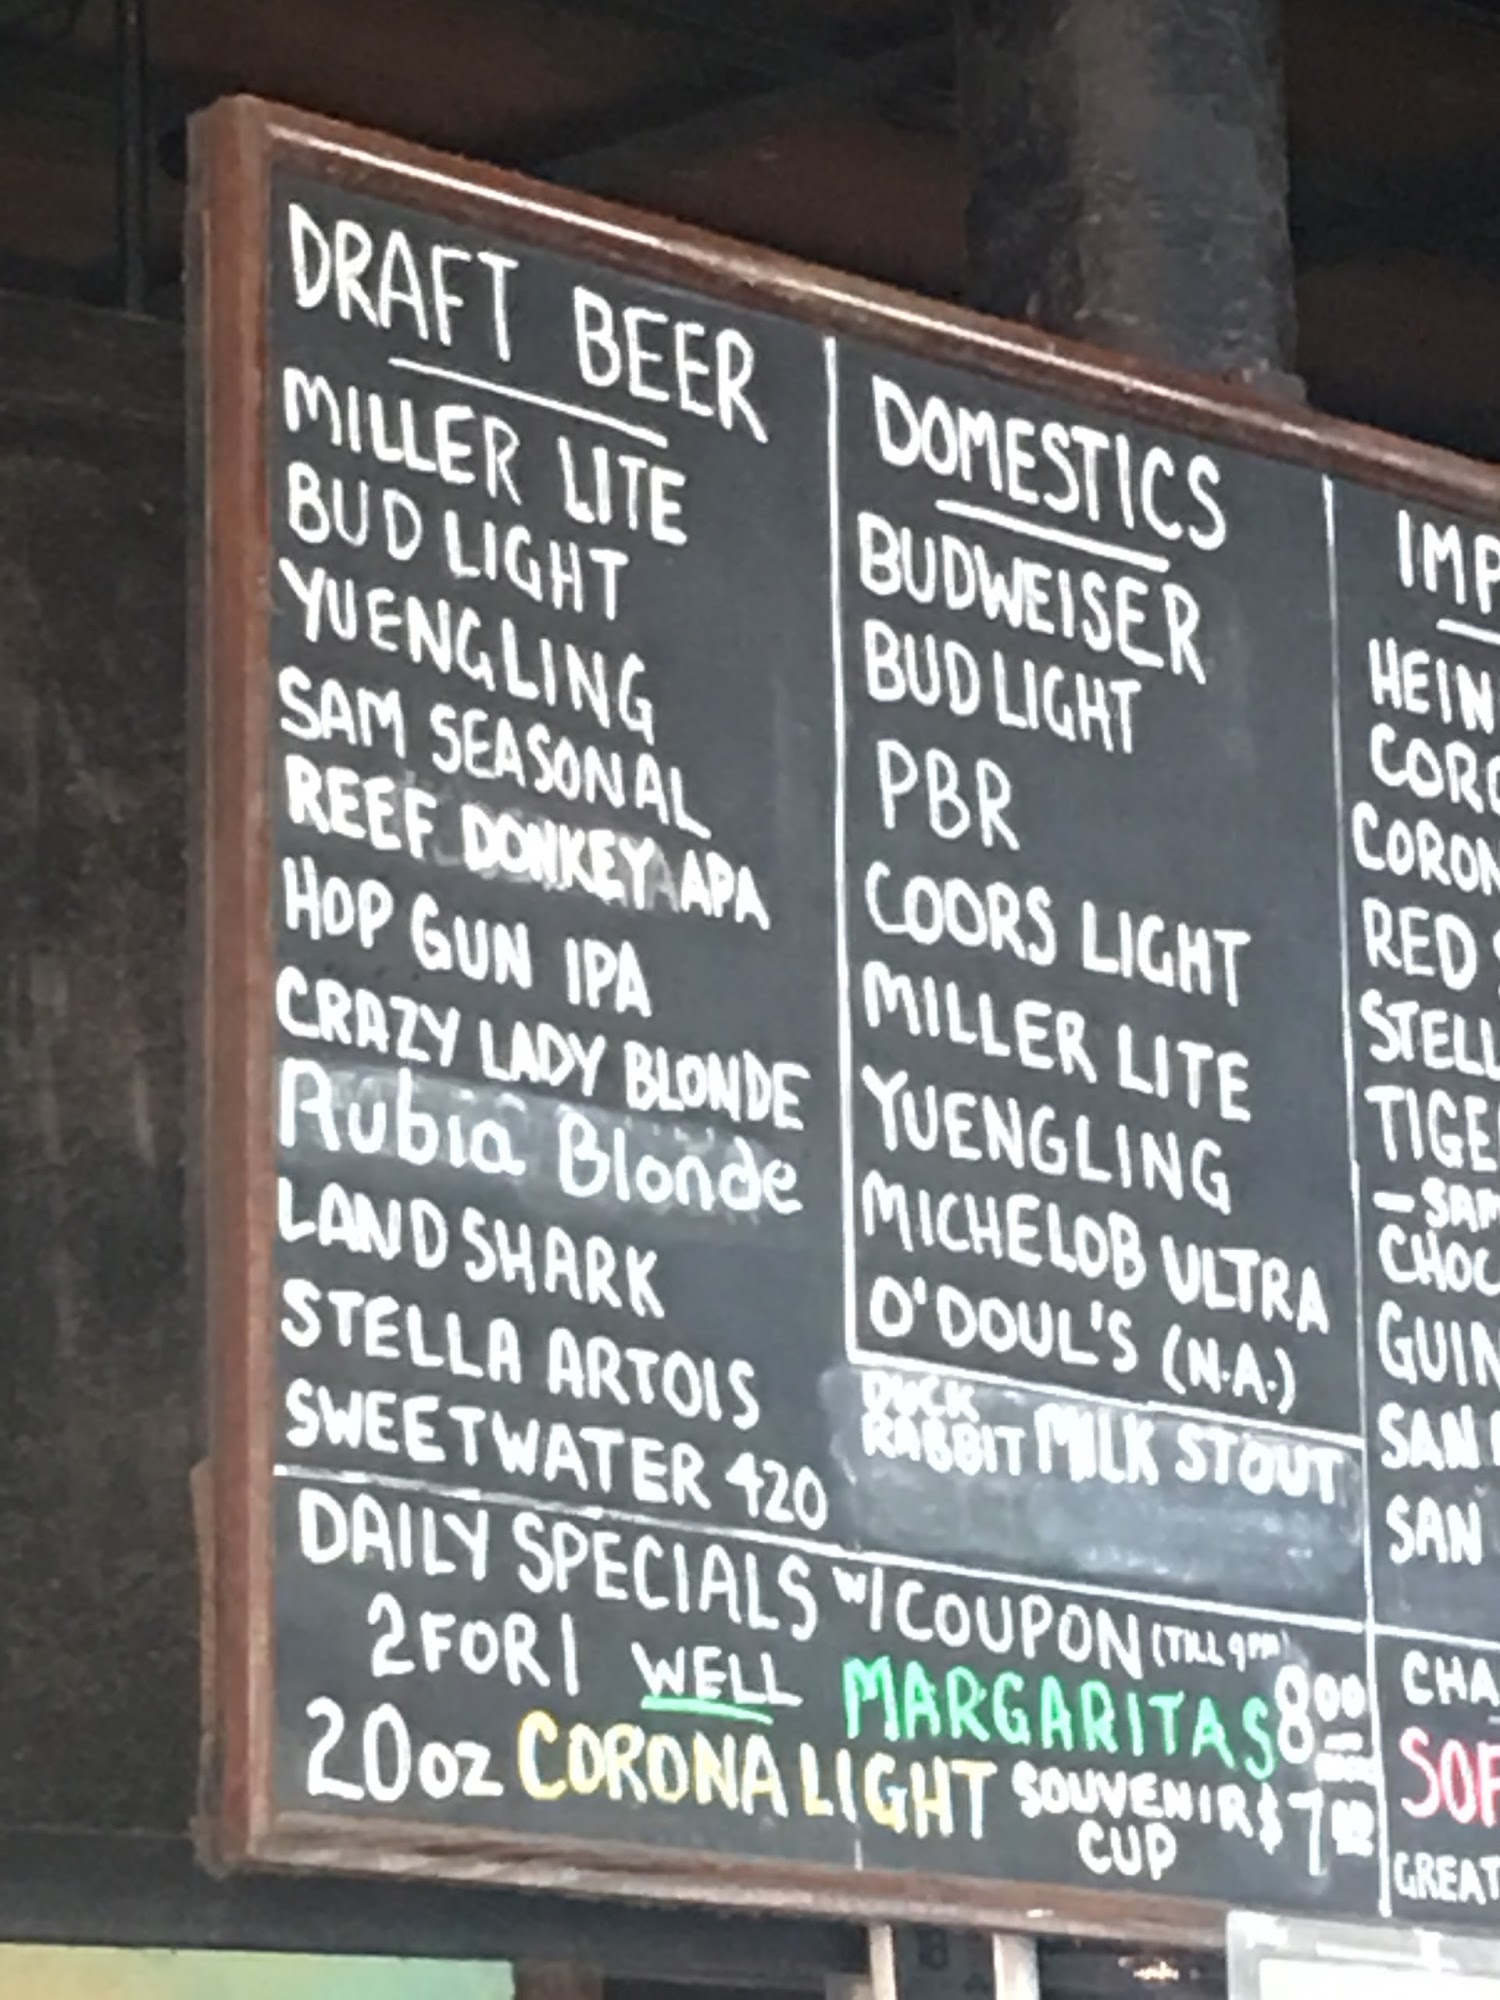 DRAFT BEER
MILLER LITE
BUD LIGHT
YUENGLING
SAM SEASONAL
REEF DONKEY APA
HOP GUN IPA
CRAZY LADY BLONDE
Rubia Blonde
LAND SHARK
STELLA ARTOIS
SWEETWATER 420
DOMESTICS
BUDWEISER
BUD LIGHT
PBR
COORS LIGHT
MILLER LITE
YUENGLING
MICHELOB ULTRA
O'DOUL'S (N.A.)
DUCK
RABBIT MILK STOUT
IMP
HEIN
CORO
CORON
RED
STELL
TIGE
- SAM
CHOC
GUIN
SAN
SAN
DAILY SPECIALS W/ COUPON (TILL 9PM)
2 FOR 1 WELL MARGARITAS 8.00
20oz CORONA LIGHT SOUVENIR $7.00
CUP
CHA
SOF
GREAT